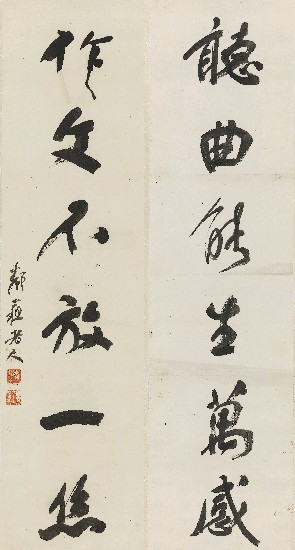 聽曲能生萬感
作文不放一絲
鄰蘇老人